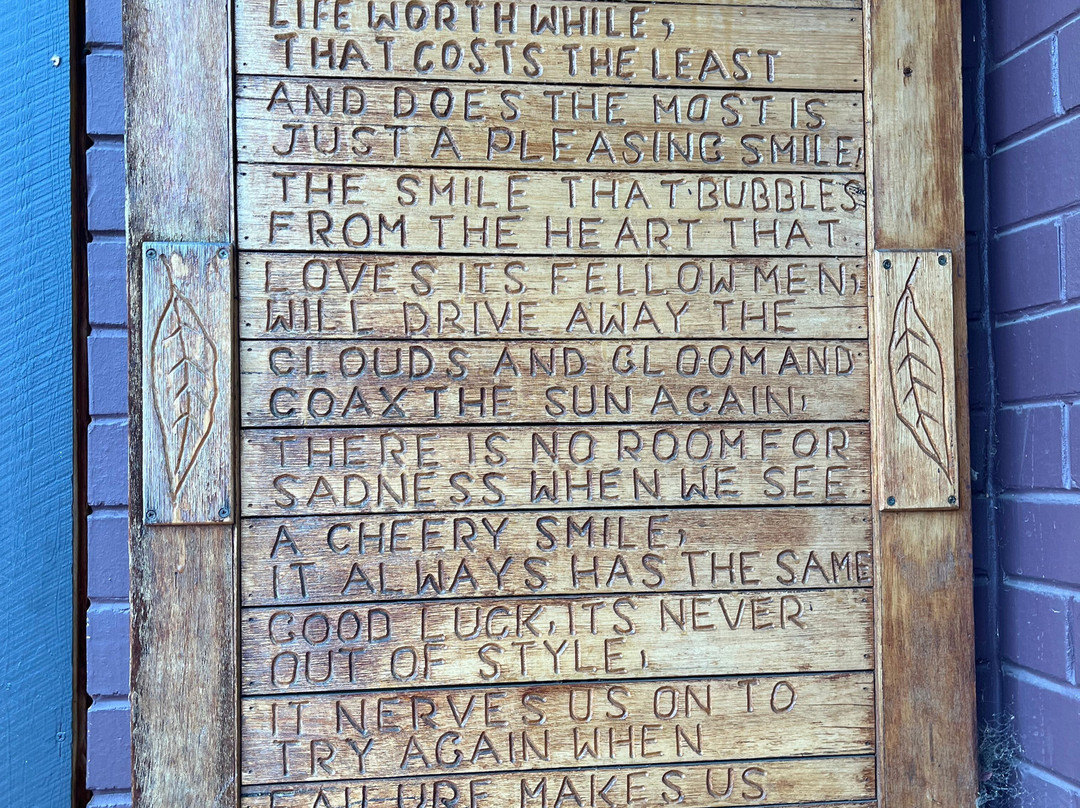 LIFE WORTH WHILE,
THAT COSTS THE LEAST
AND DOES THE MOST IS
JUST A PLEASING SMILE,
THE SMILE THAT·BUBBLES
FROM THE HEART THAT
LOVES ITS FELLOW MEN,
WILL DRIVE AWAY THE
CLOUDS AND GLOOM AND
COAX THE SUN AGAIN,
THERE IS NO ROOM FOR
SADNESS WHEN WE SEE
A CHEERY SMILE,
IT ALWAYS HAS THE SAME
GOOD LUCK, ITS NEVER
OUT OF STYLE,
IT NERVES US ON TO
TRY AGAIN WHEN
FAILURE MAKES US